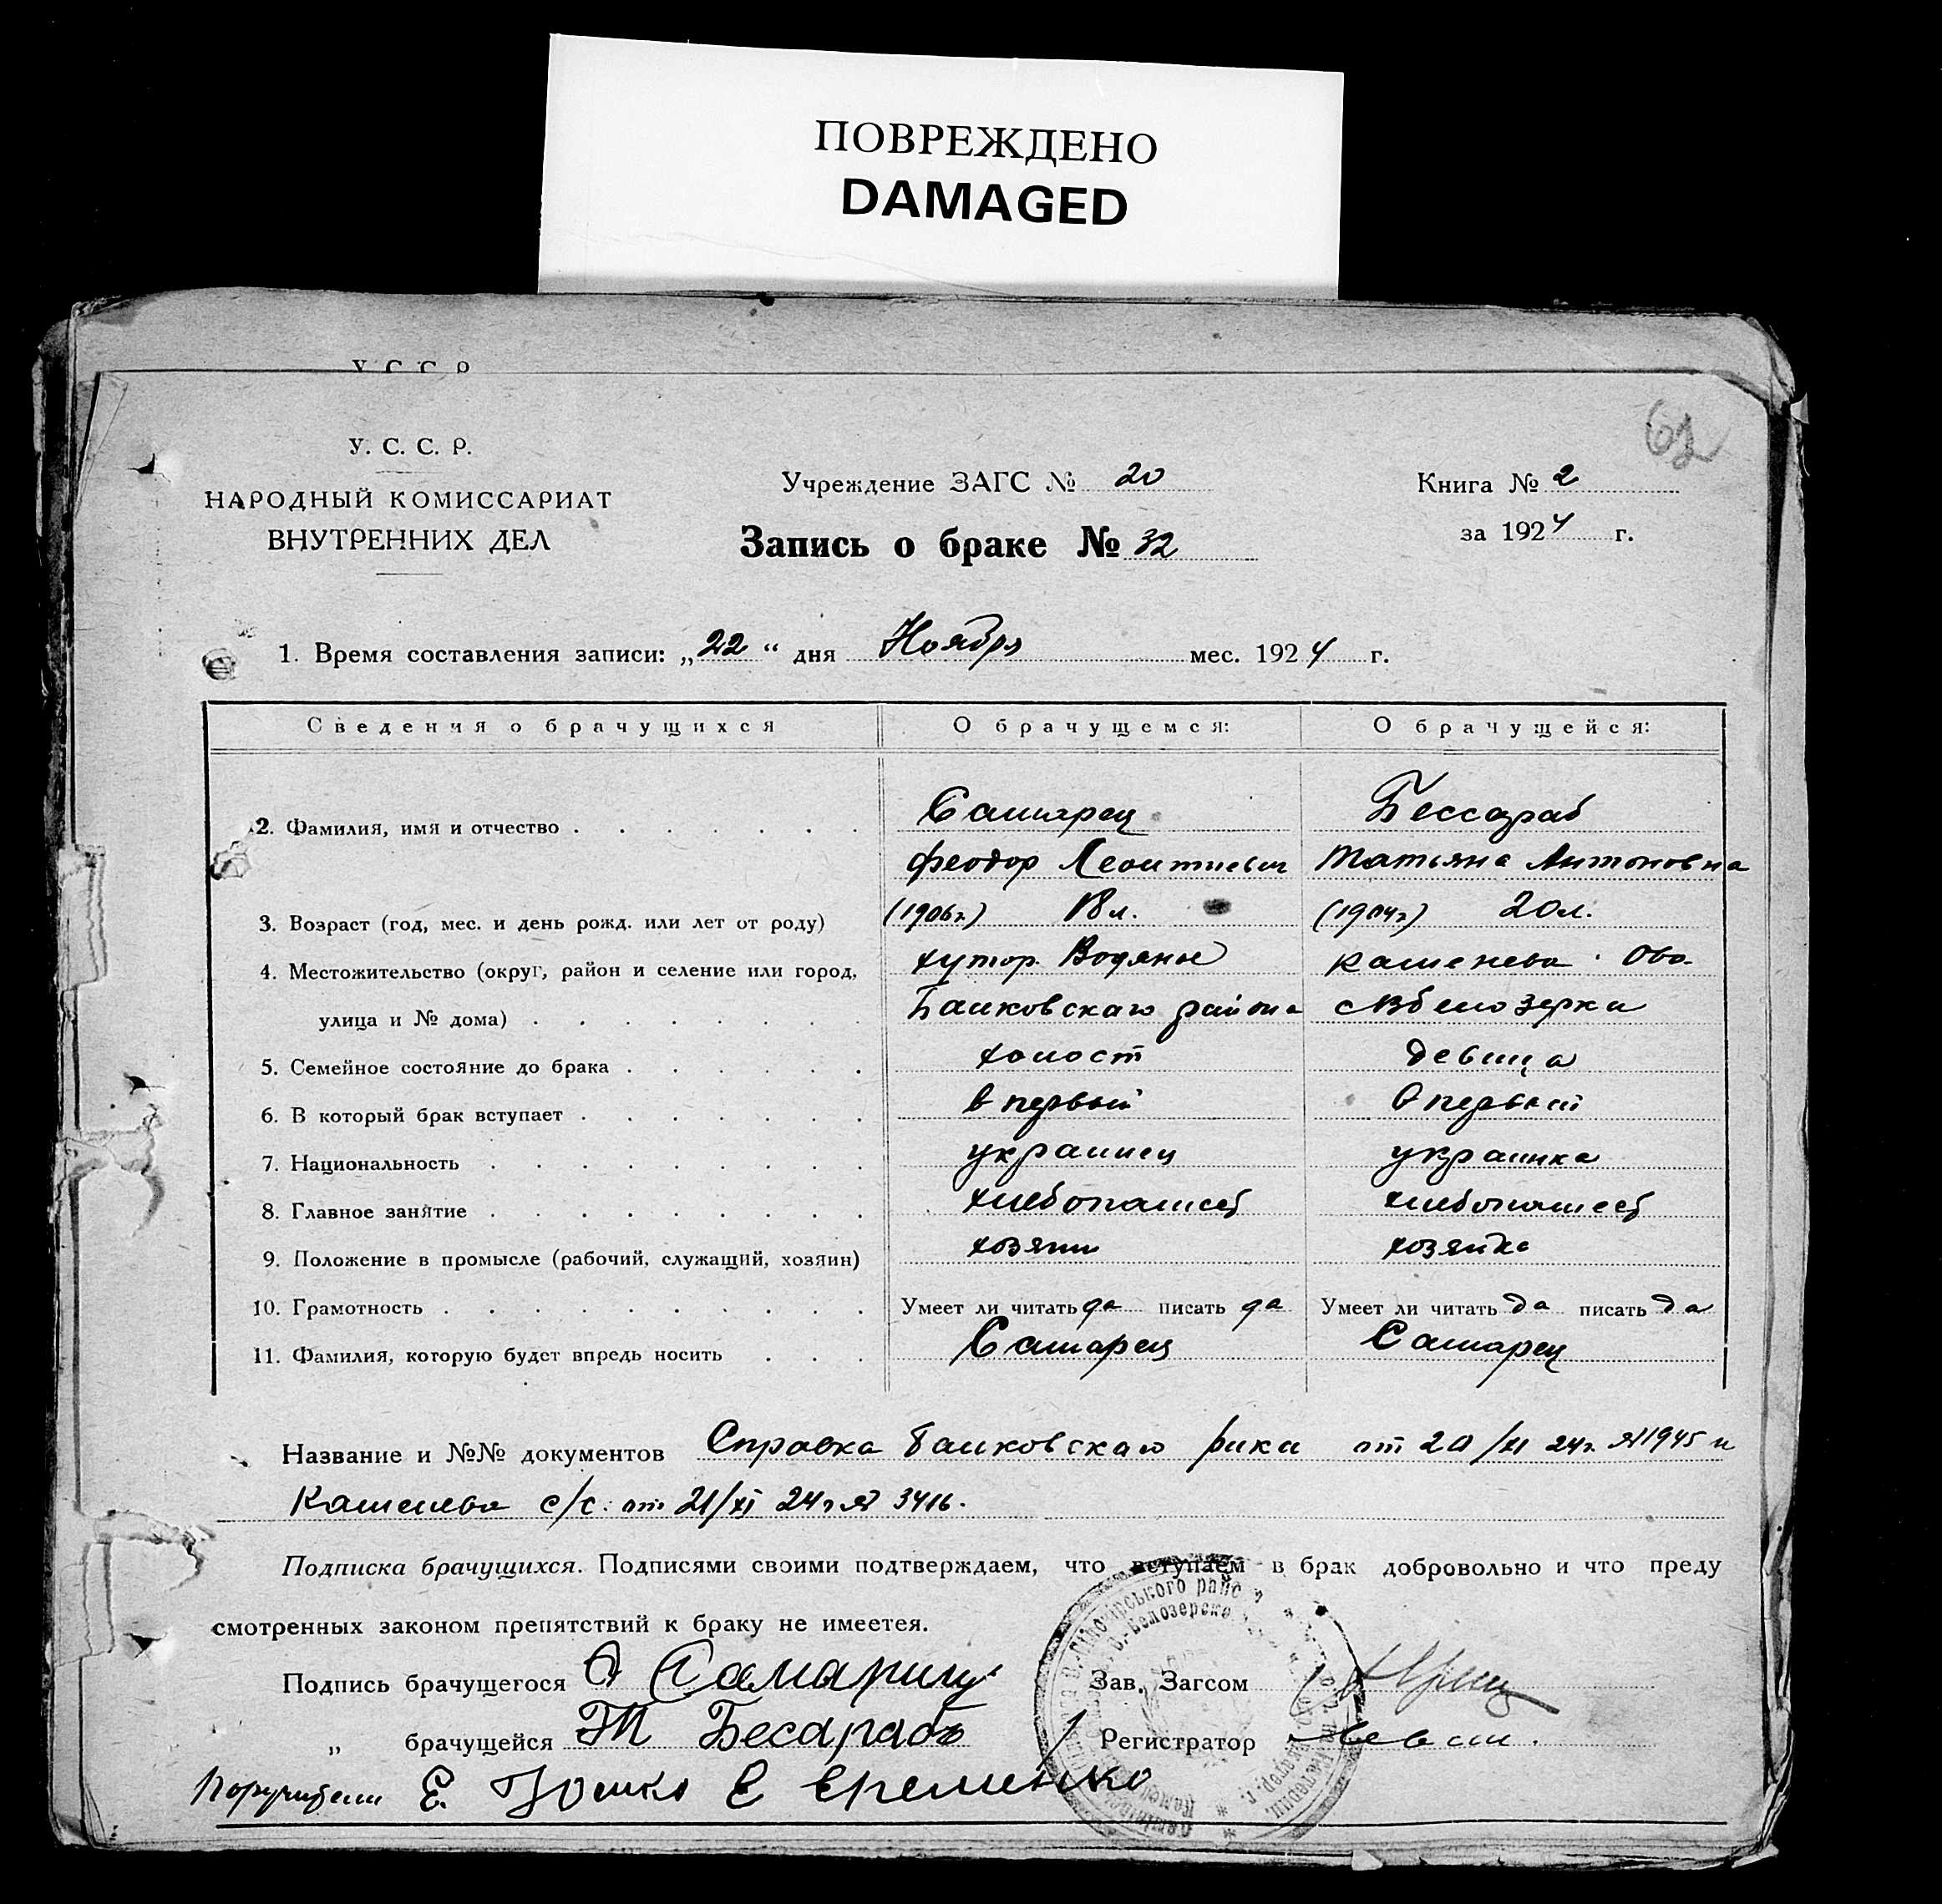 ПОВРЕЖДЕНО
DAMAGED
У С С Р
62
У. С. С. Р.
НАРОДНЫЙ КОМИССАРИАТ
ВНУТРЕННИХ ДЕЛ
Учреждение ЗАГС № 20
Запись о браке № 32
Книга № 2
за 1924 г.
1. Время составления записи: „22“ дня Ноября мес. 1924 г.
Сведения о брачущихся О брачущемся: О брачущейся:
2. Фамилия, имя и отчество Самарец Бессараб
Феодор Леонтиевич Татьяна Антоновна
3. Возраст (год, мес. и день рожд. или лет от роду) (1906г) 18 л. (1904г) 20 л.
4. Местожительство (округ, район и селение или город, хутор Водяное
улица и № дома) Банковскаго района
5. Семейное состояние до брака холост девица
6. В который брак вступает в первый в первый
7. Национальность украинец украинка
8. Главное занятие хлебопашест хлебопашест
9. Положение в промысле (рабочий, служащий, хозяин) хозяин хозяйка
10. Грамотность Умеет ли читать да писать да Умеет ли читать да писать да
11. Фамилия, которую будет впредь носить Самарец Самарец
Название и №№ документов Справка Банковскаго рика от 20/XI 24г. № 1945 и
с/с. от 21/XI 24г № 3416.
Подписка брачущихся. Подписями своими подтверждаем, что вступаем в брак добровольно и что преду
смотренных законом препятствий к браку не имеетея.
Подпись брачущегося Зав. Загсом
„ брачущейся Т Бесарабь Регистратор
Поручители Е. Е Еременко